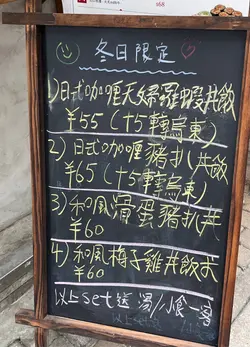 冬日限定
1) 日式咖喱天婦羅蝦丼飯
¥55 (+5轉烏東)
2) 日式咖喱豬扒丼飯
¥65 (+5轉烏東)
3) 和風滑蛋豬扒丼
¥60
4) 和風梅子雞丼飯
¥60
以上set送 湯/小食一客